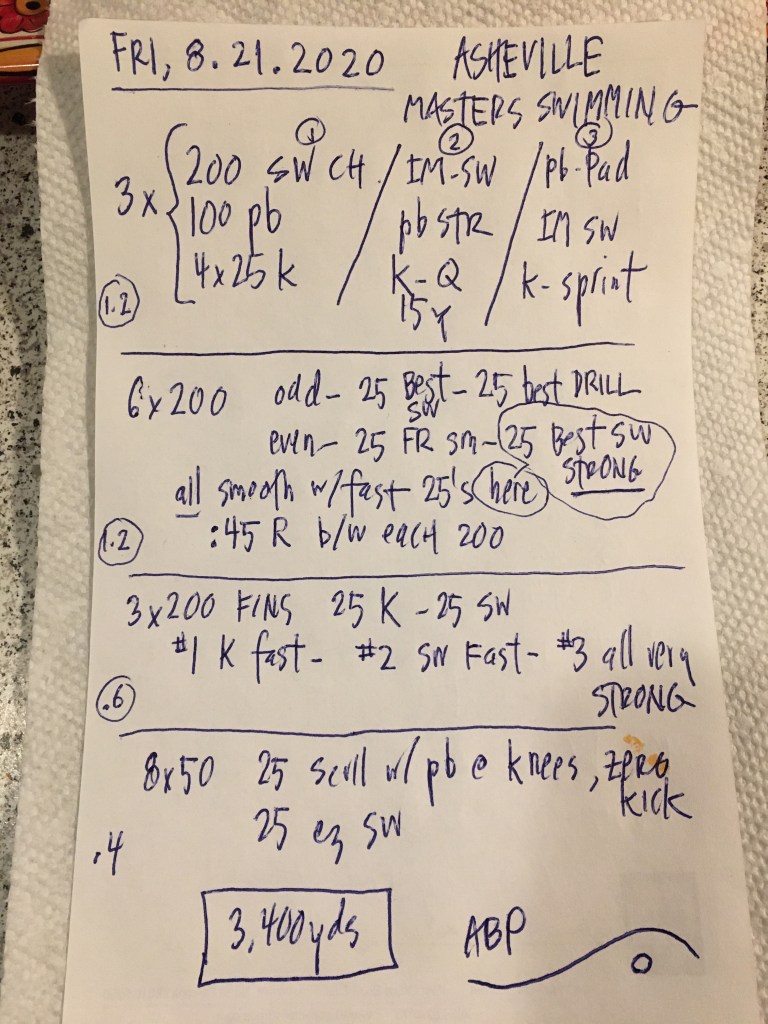 FRI, 8.21.2020 ASHEVILLE
MASTERS SWIMMING
1 2 3
3x { 200 SW CH / IM-SW / pb-Pad
100 pb / pb STR / IM SW
4x25 k / K-Q / k-sprint
15 Y
1.2
6x200 odd- 25 Best SW - 25 best DRILL
even- 25 FR sm- 25 Best SW
STRONG
all smooth w/fast 25's here
:45 R b/w each 200
1.2
3x200 FINS 25 K - 25 SW
#1 K fast- #2 SW FAST- #3 all very
STRONG
.6
8x50 25 scull w/ pb @ knees, ZERO
KICK
25 ez SW
.4
3,400yds
ABP